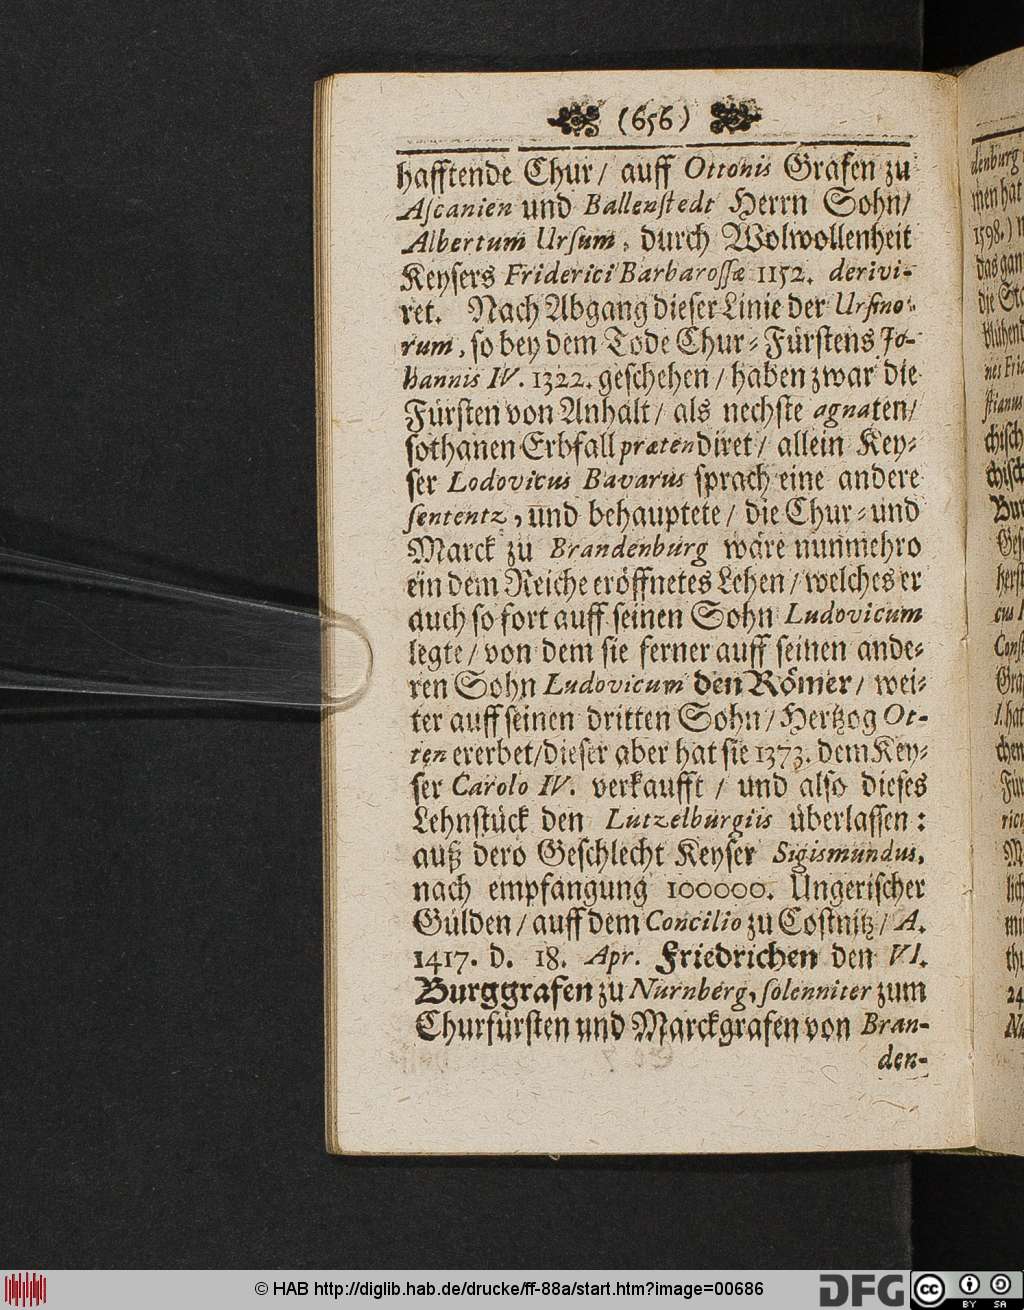 (656)
hafftende Chur/ auff Ottonis Grafen zu
Aſcanien und Ballenſtedt Herrn Sohn/
Albertum Urſum, durch Wolwollenheit
Keyſers Friderici Barbaroſſæ 1152. derivi-
ret. Nach Abgang dieſer Linie der Urſino-
rum, ſo bey dem Tode Chur-Fürſtens Jo-
hannis IV. 1322. geſchehen/ haben zwar die
Fürſten von Anhalt/ als nechſte agnaten/
ſothanen Erbfall prætendiret/ allein Key-
ſer Lodovicus Bavarus ſprach eine andere
ſententz, und behauptete/ die Chur- und
Marck zu Brandenburg wäre nunmehro
ein dem Reiche eröffnetes Lehen/ welches er
auch ſo fort auff ſeinen Sohn Ludovicum
legte/ von dem ſie ferner auff ſeinen ande-
ren Sohn Ludovicum den Römer/ wei-
ter auff ſeinen dritten Sohn/ Hertzog Ot-
ten ererbet/ dieſer aber hat ſie 1373. dem Key-
ſer Carolo IV. verkaufft/ und alſo dieſes
Lehnſtück den Lutzelburgiis überlaſſen:
auß dero Geſchlecht Keyſer Sigismundus,
nach empfangung 100000. Ungeriſcher
Gülden/ auff dem Concilio zu Coſtnitz/ A.
1417. d. 18. Apr. Friedrichen den VI.
Burggrafen zu Nürnberg, ſolenniter zum
Churfürſten und Marckgrafen von Bran-
den-
denburg
men hat
1598.)
das gan
die
chiſch
Geſ
Gra
hat
chen
Für
lich
mi
24
© HAB http://diglib.hab.de/drucke/ff-88a/start.htm?image=00686
DFG
cc BY SA